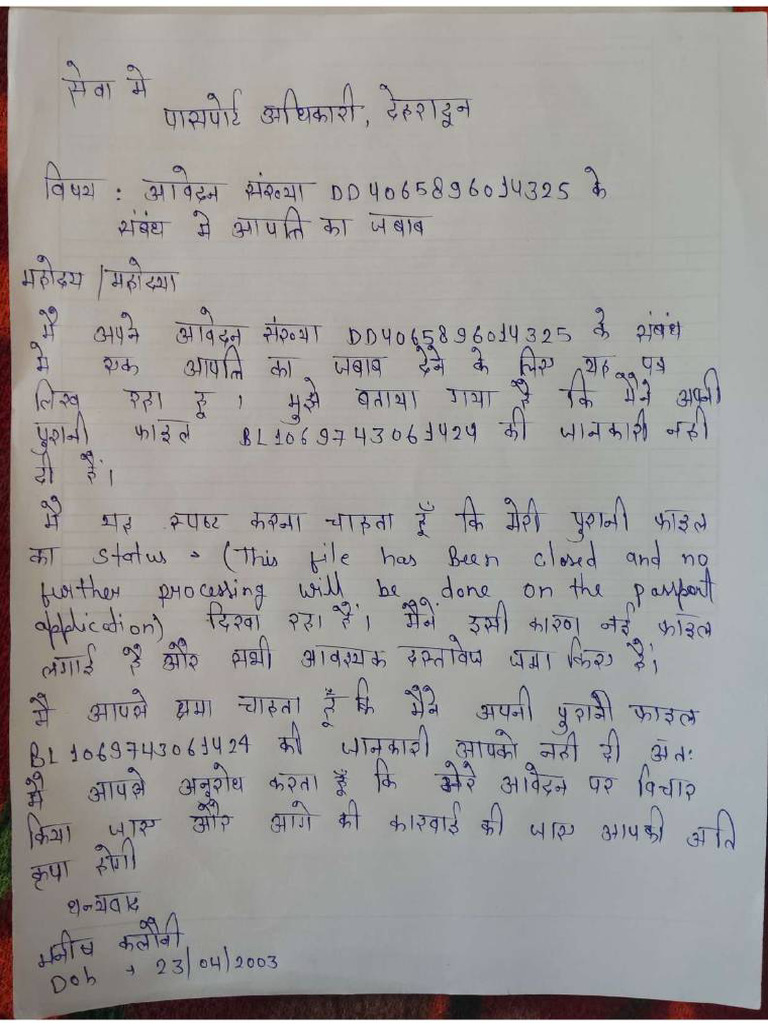 सेवा मे
पासपोर्ट अधिकारी, देहरादून
विषय : आवेदन संख्या DD4065896014325 के
संबंध मे आपत्ति का जबाब
महोदय / महोदया
मै अपने आवेदन संख्या DD4065896014325 के संबंध
मे एक आपत्ति का जबाब देने के लिए यह पत्र
लिख रहा हू । मुझे बताया गया है कि मैने अपनी
पुरानी फाइल BL1069743061424 की जानकारी नही
दी हैं।
मै यह स्पष्ट करना चाहता हूँ कि मेरी पुरानी फाइल
का status → (This file has Been closed and no
further processing will be done on the passport
application) दिखा रहा हैं। मैनें इसी कारण नई फाइल
लगाई है और सभी आवश्यक दस्तावेज जमा किए हैं।
मै आपसे क्षमा चाहता हूँ कि मैने अपनी पुरानी फाइल
BL1069743061424 की जानकारी आपको नही दी अतः
मै आपसे अनुरोध करता हूँ कि मेरे आवेदन पर विचार
किया जाए और आगे की कारवाई की जाए आपकी अति
कृपा होगी
धन्यवाद
मनीष कलौनी
Dob → 23/04/2003